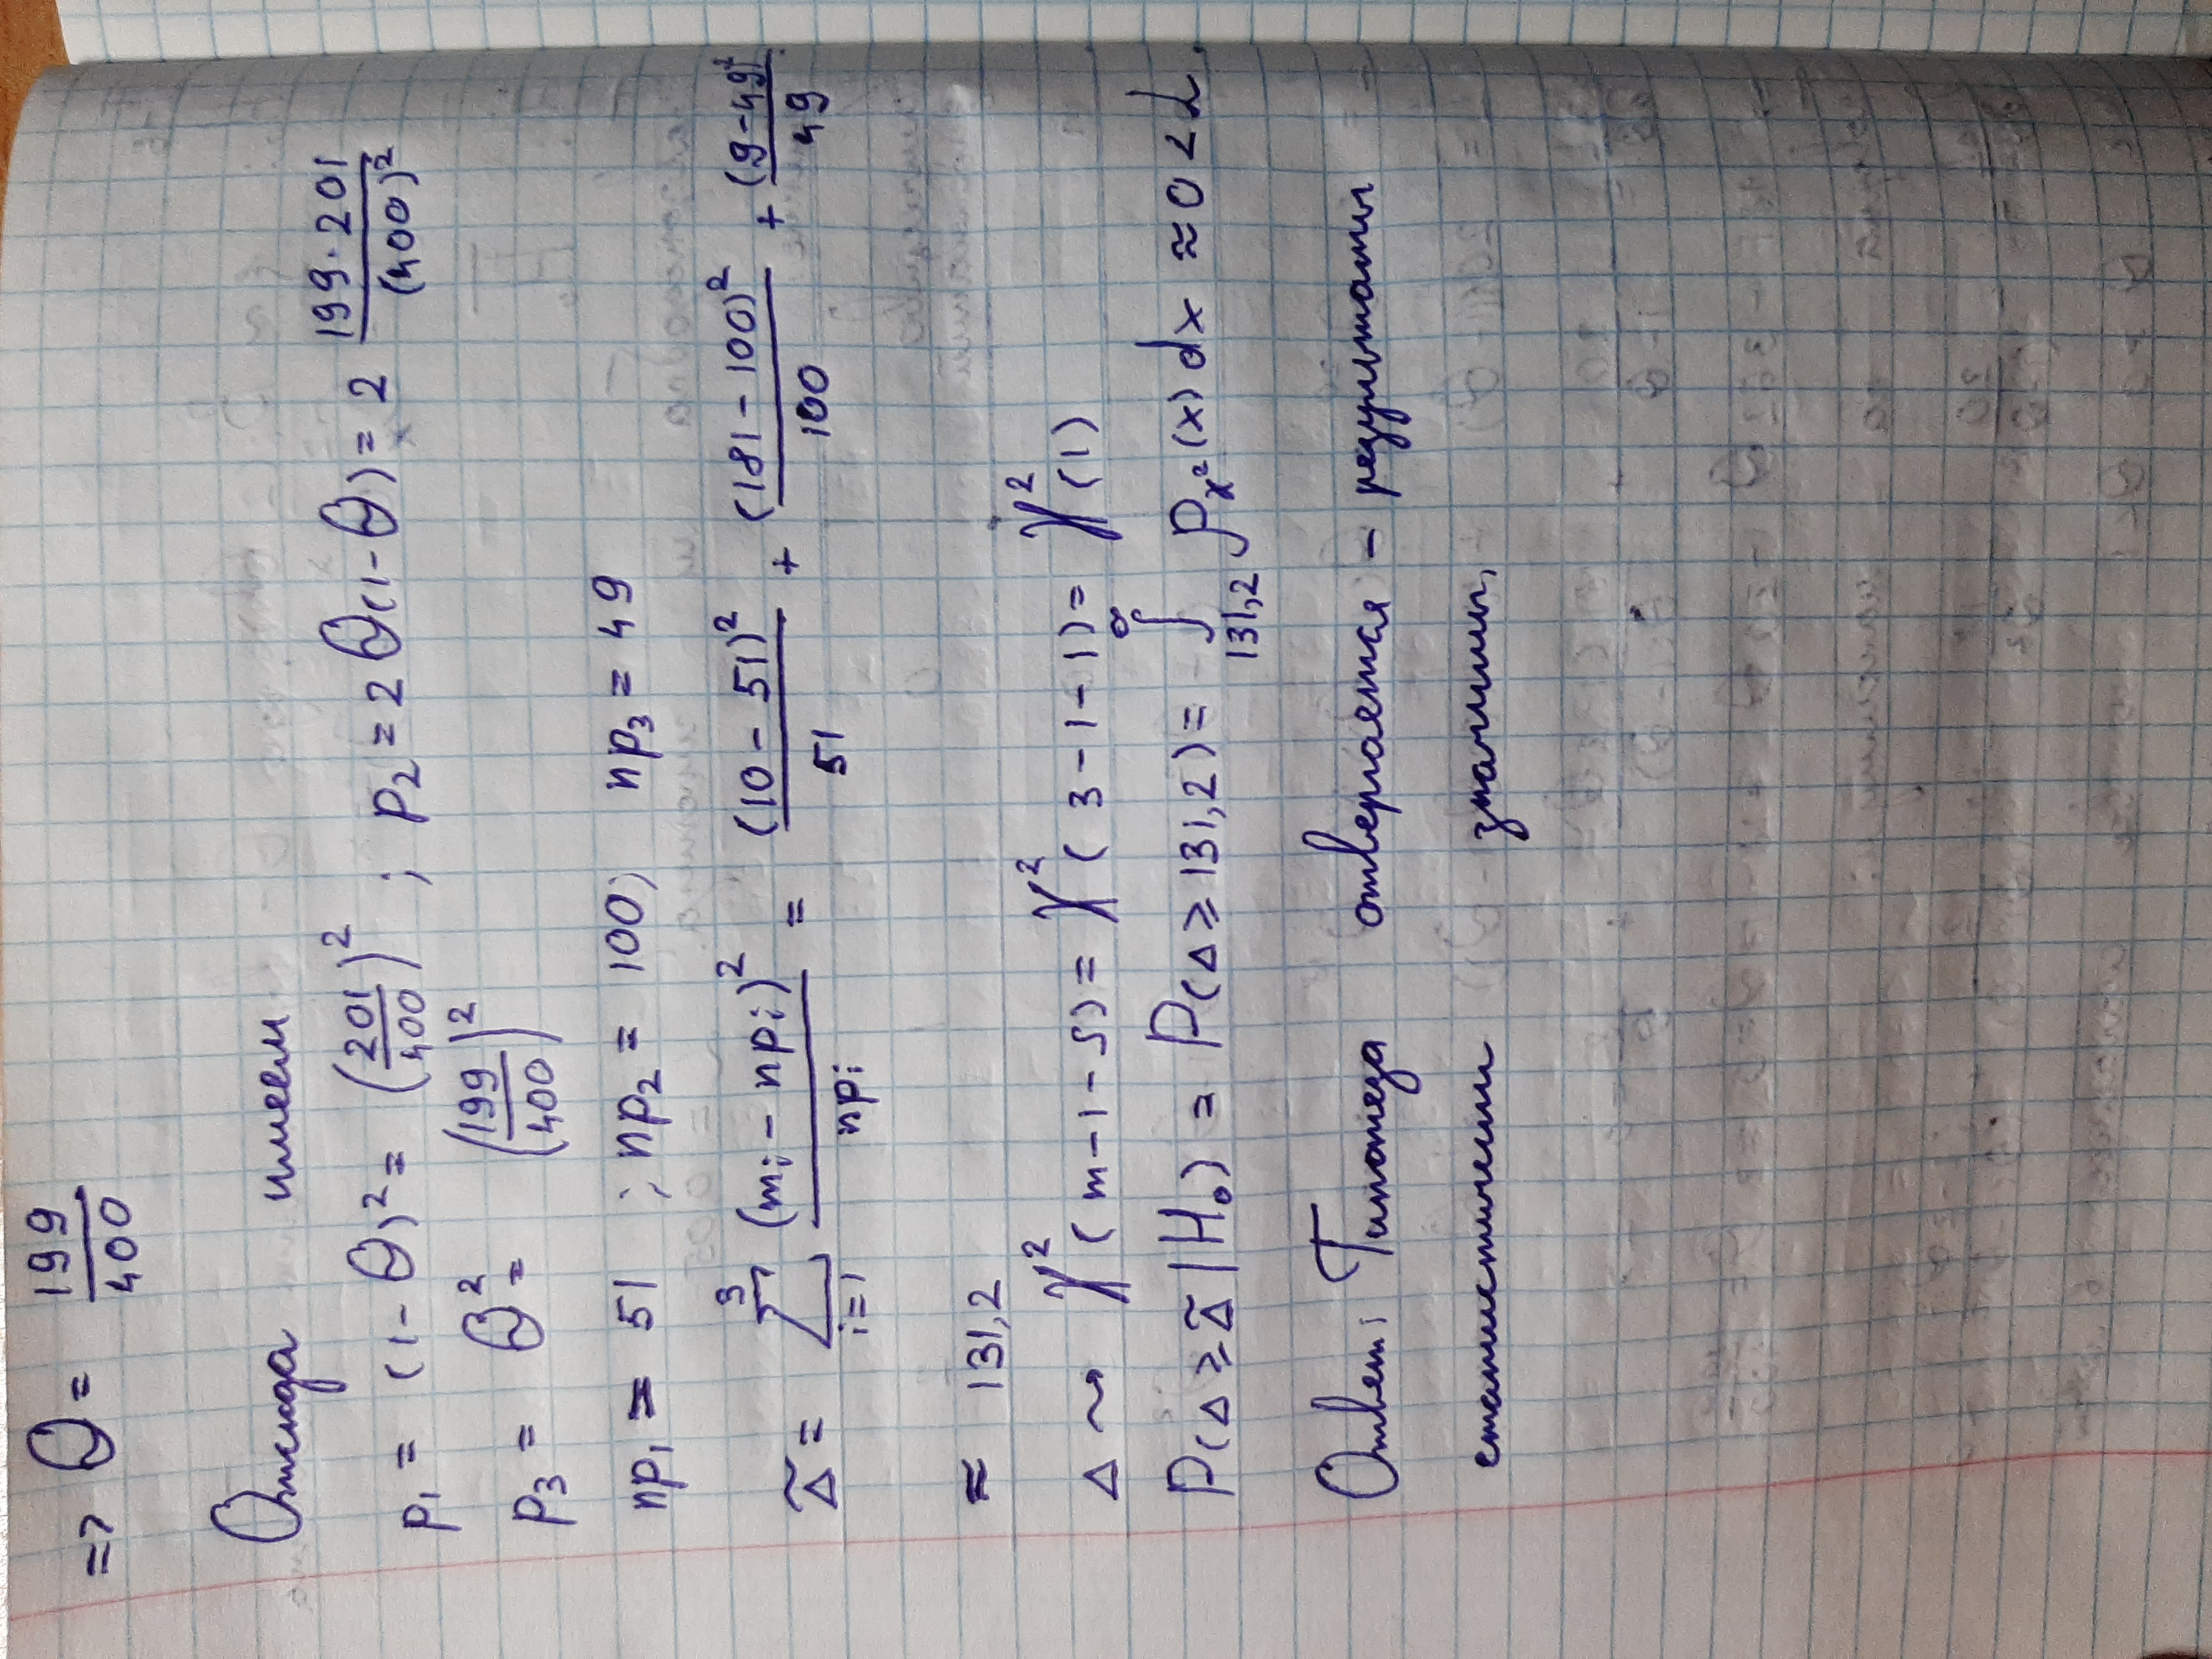 => θ = 199/400
Отсюда имеем
p₁ = (1-θ)² = (201/400)² ; p₂ = 2θ(1-θ) = 2 199·201/(400)²
p₃ = θ² = (199/400)²
np₁ = 51 ; np₂ = 100; np₃ = 49
Δ̃ = Σ_{i=1}^{3} (mᵢ - npᵢ)²/npᵢ = (10-51)²/51 + (181-100)²/100 + (9-49)²/49
≈ 131,2
Δ ⇝ χ²(m-1-s) = χ²(3-1-1) = χ²(1)
P(Δ ≥ Δ̃ | H₀) = P(Δ ≥ 131,2) = ∫_{131,2}^{∞} p_{χ²}(x) dx ≈ 0 < α.
Ответ: Гипотеза отвергается - результаты
статистически значимы.